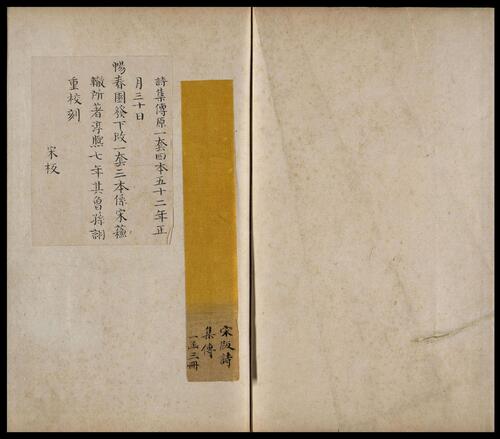 詩集傳原一套四本五十二年正
月三十日
暢春園發下改一套三本係宋蘇
轍所著淳熈七年其曾孫詡
重校刻
宋板
宋版詩
集傳
一函三冊